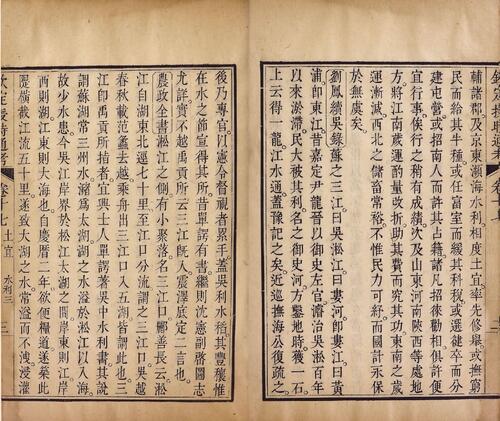 欽定授時通考
輔諸郡及京東瀕海水利相度土宜率先修舉或撫窮
民而給其牛種或任富室而緩其科稅或選徒卒而分
建屯營或招南人而許其占籍諸凡招徠勸相俱許便
宜行事俟行之稍有成績次及山東河南陝西等處地
方將江南歲運酌量改折助其費而究其功東南之歲
運漸減西北之儲畜常裕不惟民力可紓而國計永保
於無虞矣
劉鳳續吳錄蘇之三江曰吳淞江曰婁河即婁江曰黃
浦即東江昔嘉定尹龍晉以御史左官濬治吳淞百年
以來淤滯民大被其利名之御史河方鑿地時獲一石
上云得一龍江水通蓋豫記之矣近巡撫海公復疏之
後乃專官以憲令督視者累手蓋吳利水稻其豐穰惟
在水之節宣得其所昔單諤有書繼則沈憲副啓圖志
尤詳實不越禹貢所云三江既入震澤底定二言也
農政全書松江之側有小聚落名三江口酈善長云淞
江自湖東北逕七十里至江口分流謂之三江口吳越
春秋載范蠡去越乘舟出三江口入五湖皆謂此也三
江即禹貢所指者宜興士人單諤著吳中水利書其說
謂蘇湖常三州水瀦爲太湖湖之水溢於淞江以入海
故少水患今吳江岸界於松江太湖之間岸東則江岸
西則湖江東則大海也自慶曆二年欲便糧道遂築此
隄橫截江流五十里遂致太湖之水常溢而不洩浸灌
欽定授時通考 卷十七 土宜 水利三 三